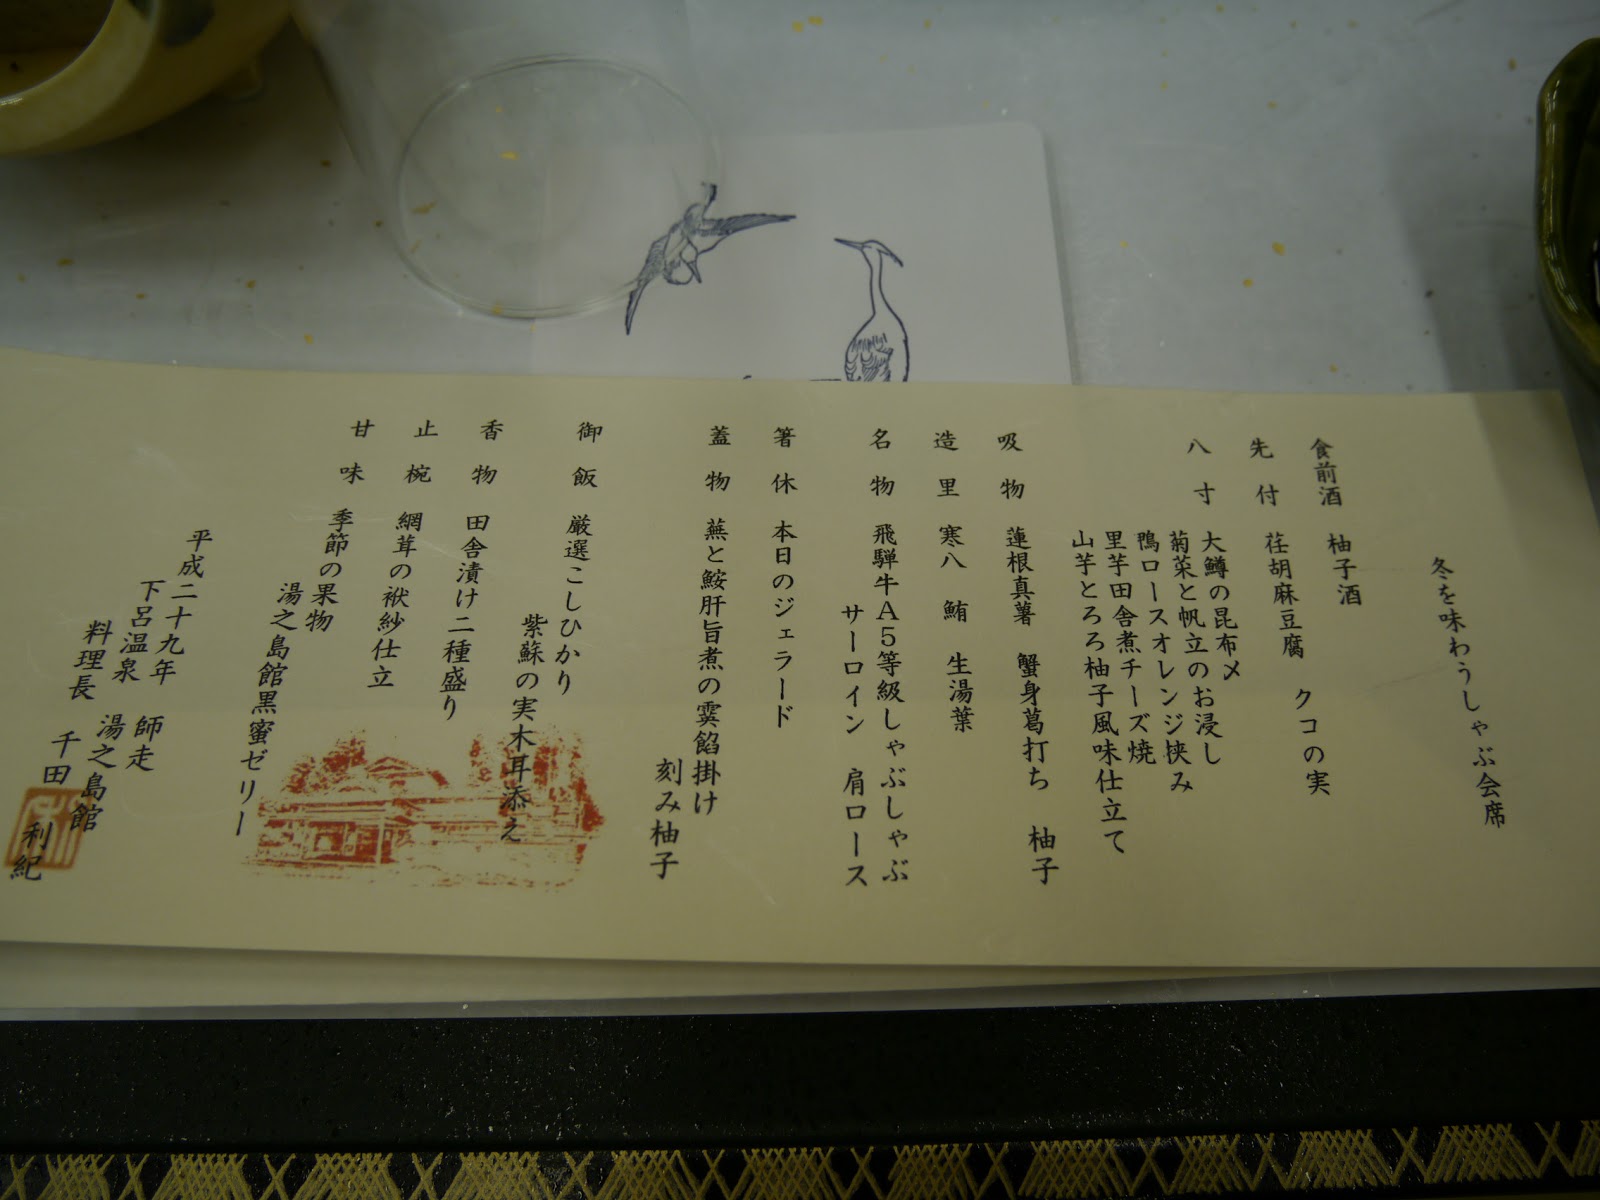 冬を味わうしゃぶ会席
食前酒 柚子酒
先付 荏胡麻豆腐 クコの実
八寸 大鱒の昆布〆
菊菜と帆立のお浸し
鴨ロースオレンジ挟み
里芋田舎煮チーズ焼
山芋とろろ柚子風味仕立て
吸物 蓮根真薯 蟹身葛打ち 柚子
造里 寒八 鮪 生湯葉
名物 飛騨牛A5等級しゃぶしゃぶ
サーロイン 肩ロース
箸休 本日のジェラード
蓋物 蕪と鮟肝旨煮の霙餡掛け
刻み柚子
御飯 厳選こしひかり
紫蘇の実木耳添え
香物 田舎漬け二種盛り
止椀 網茸の袱紗仕立
甘味 季節の果物
湯之島館黒蜜ゼリー
平成二十九年 師走
下呂温泉 湯之島館
料理長 千田 利紀